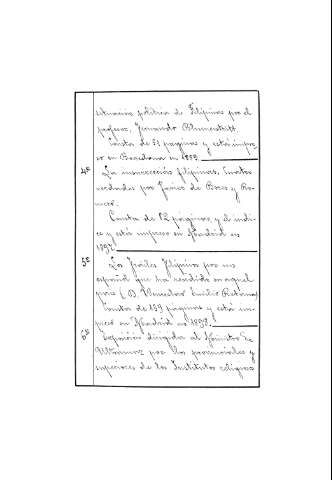 situación política de Filipinas por el
profesor, Fernando Blumentritt.
Consta de 51 paginas y está impre-
so en Barcelona en
4º
La insurrección filipinas,
por Javier de Bores y Ro-
mero.
Consta de 62 paginas y el indi-
ce y está impreso en Madrid en
1897.
5º
Los Frailes Filipinos por un
español que ha residido en aquel
pais (D. Wenceslao Emilio Retana)
Consta de 139 paginas y está im-
preso en Madrid en 1898.
6º
Exposición dirigida al Ministro de
Ultramar por los provinciales y
superiores de los Institutos religiosos